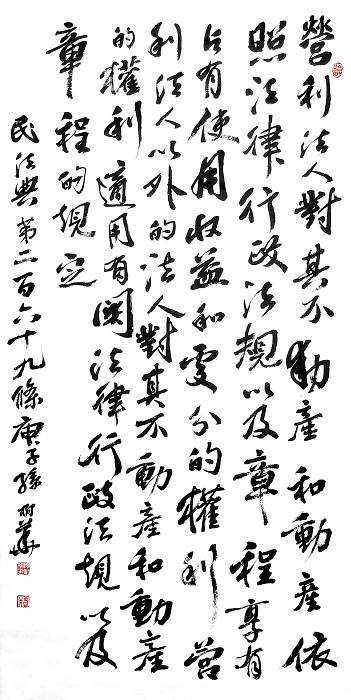 營利法人對其不動產和動產依
照法律行政法規以及章程享有
占有使用收益和處分的權利營
利法人以外的法人對其不動產和動產
的權利適用有關法律行政法規以及
章程的規定
民法典第二百六十九條庚子孫